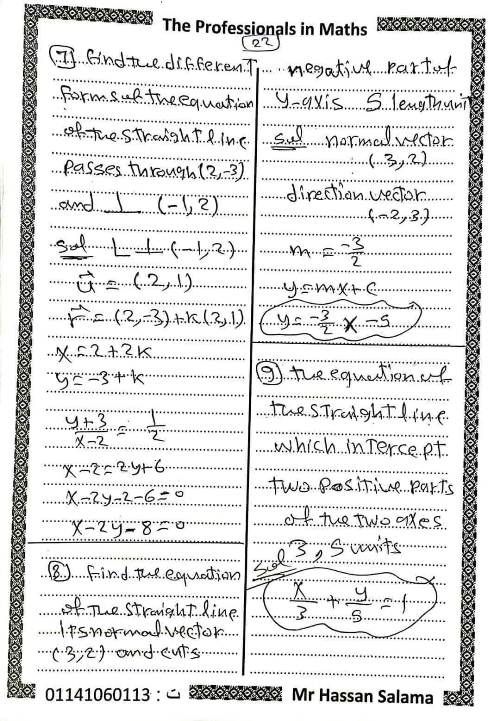 The Professionals in Maths
22
(7) find the different
forms of the equation
of the straight line
passes through (2,-3)
and ⊥ (-1,2)
Sol L ⊥ (-1,2)
u⃗ = (2,1)
r⃗ = (2,-3)+k(2,1)
x=2+2k
y=-3+k
y+3/x-2 = 1/2
x-2=2y+6
x-2y-2-6=0
x-2y-8=0
(8) find the equation
of the straight line
its normal vector
(3,2) and cuts
negative part of
y-axis 5 length unit
Sol normal vector
(3,2)
direction vector
(-2,3)
m = -3/2
y=mx+c
y=-3/2 x -5
(9) the equation of
the straight line
which intercept
two positive parts
of the two axes
3, 5 units
Sol
x/3 + y/5 = 1
01141060113 : ت
Mr Hassan Salama